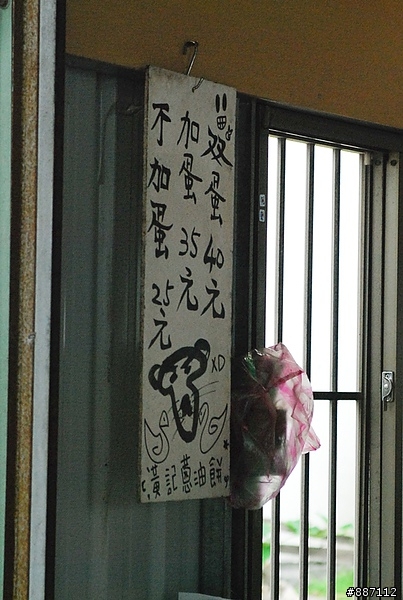 双蛋 40元
加蛋 35元
不加蛋 25元
XD
黃記蔥油餅
#887112